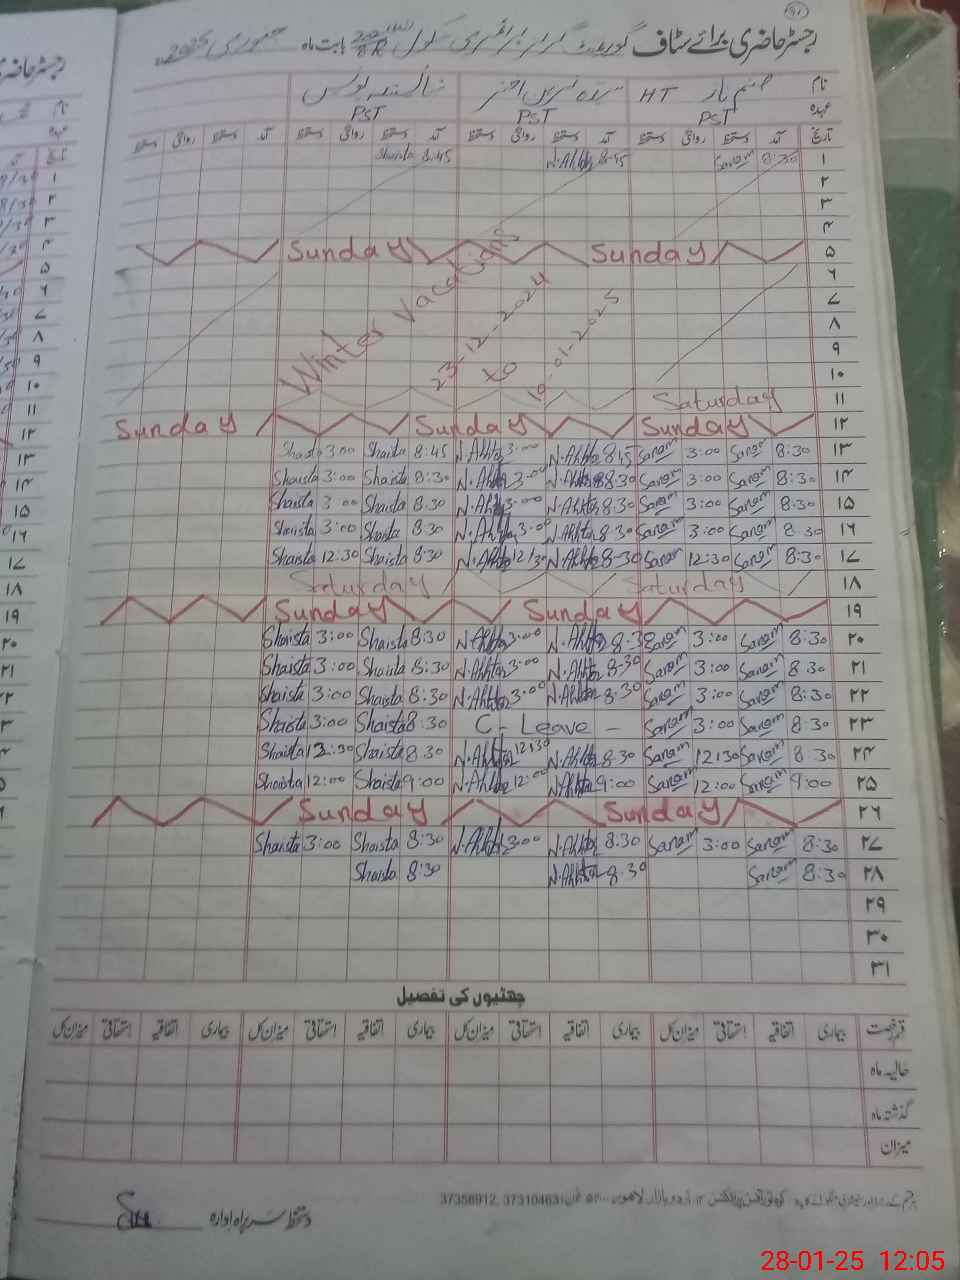 ۹۱
رجسٹر حاضری برائے سٹاف گورنمنٹ گرلز پرائمری سکول بابت ماہ جنوری 2025
نام صنم ناز HT سیدہ نرگس اختر شائستہ یونس
عہدہ PST PST PST
تاریخ آمد دستخط روانگی دستخط آمد دستخط روانگی دستخط آمد دستخط روانگی دستخط آمد دستخط روانگی دستخط
۱ 8:30 Sanam 8:45 N.Akhtar 8:45 Shaista
۲
۳
۴
۵ Sunday Sunday
۶
۷
۸
۹
۱۰
Winter Vacations
23-12-2024
to
10-01-2025
۱۱ Saturday
۱۲ Sunday Sunday Sunday
۱۳ Shaista 3:00 Shaista 8:45 N.Akhtar 3:00 N.Akhtar 8:45 Sanam 3:00 Sanam 8:30
۱۴ Shaista 3:00 Shaista 8:30 N.Akhtar 3:00 N.Akhtar 8:30 Sanam 3:00 Sanam 8:30
۱۵ Shaista 3:00 Shaista 8:30 N.Akhtar 3:00 N.Akhtar 8:30 Sanam 3:00 Sanam 8:30
۱۶ Shaista 3:00 Shaista 8:30 N.Akhtar 3:00 N.Akhtar 8:30 Sanam 3:00 Sanam 8:30
۱۷ Shaista 12:30 Shaista 8:30 N.Akhtar 12:30 N.Akhtar 8:30 Sanam 12:30 Sanam 8:30
۱۸ Saturday Saturday
۱۹ Sunday Sunday
۲۰ Shaista 3:00 Shaista 8:30 N.Akhtar 3:00 N.Akhtar 8:30 Sanam 3:00 Sanam 8:30
۲۱ Shaista 3:00 Shaista 8:30 N.Akhtar 3:00 N.Akhtar 8:30 Sanam 3:00 Sanam 8:30
۲۲ Shaista 3:00 Shaista 8:30 N.Akhtar 3:00 N.Akhtar 8:30 Sanam 3:00 Sanam 8:30
۲۳ Shaista 3:00 Shaista 8:30 C - Leave - Sanam 3:00 Sanam 8:30
۲۴ Shaista 12:30 Shaista 8:30 N.Akhtar 12:30 N.Akhtar 8:30 Sanam 12:30 Sanam 8:30
۲۵ Shaista 12:00 Shaista 9:00 N.Akhtar 12:00 N.Akhtar 9:00 Sanam 12:00 Sanam 9:00
۲۶ Sunday Sunday
۲۷ Shaista 3:00 Shaista 8:30 N.Akhtar 3:00 N.Akhtar 8:30 Sanam 3:00 Sanam 8:30
۲۸ Shaista 8:30 N.Akhtar 8:30 Sanam 8:30
۲۹
۳۰
۳۱
چھٹیوں کی تفصیل
قسم رخصت بیماری اتفاقیہ استحقاقی میزان کل بیماری اتفاقیہ استحقاقی میزان کل بیماری اتفاقیہ استحقاقی میزان کل بیماری اتفاقیہ استحقاقی میزان کل
حالیہ ماہ
گذشتہ ماہ
میزان
اردو بازار لاہور 37310463, 37356912
دستخط سربراہ ادارہ
28-01-25 12:05